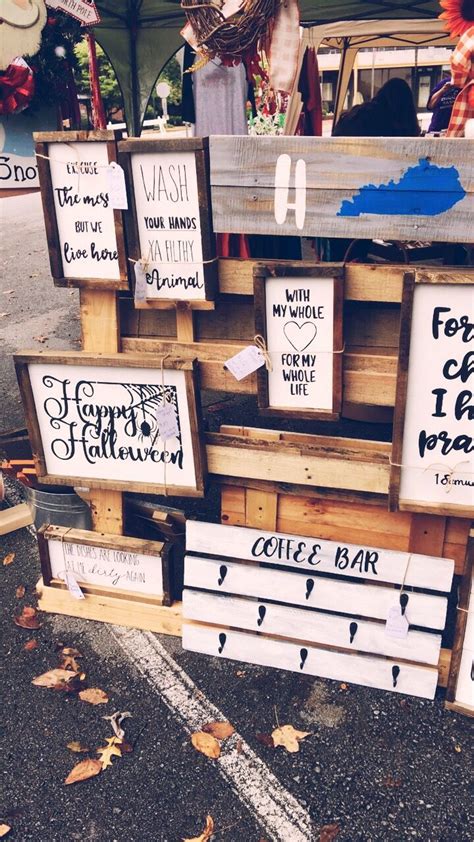 NORTH POLE
Snow
EXCUSE
The mess
BUT WE
live here
WASH
YOUR HANDS
YA FILTHY
Animal
H
WITH
MY WHOLE
FOR MY
WHOLE
LIFE
For
ch
I h
pra
1 Samu
Happy
Halloween
THE DISHES ARE LOOKING
AT ME dirty AGAIN
COFFEE BAR